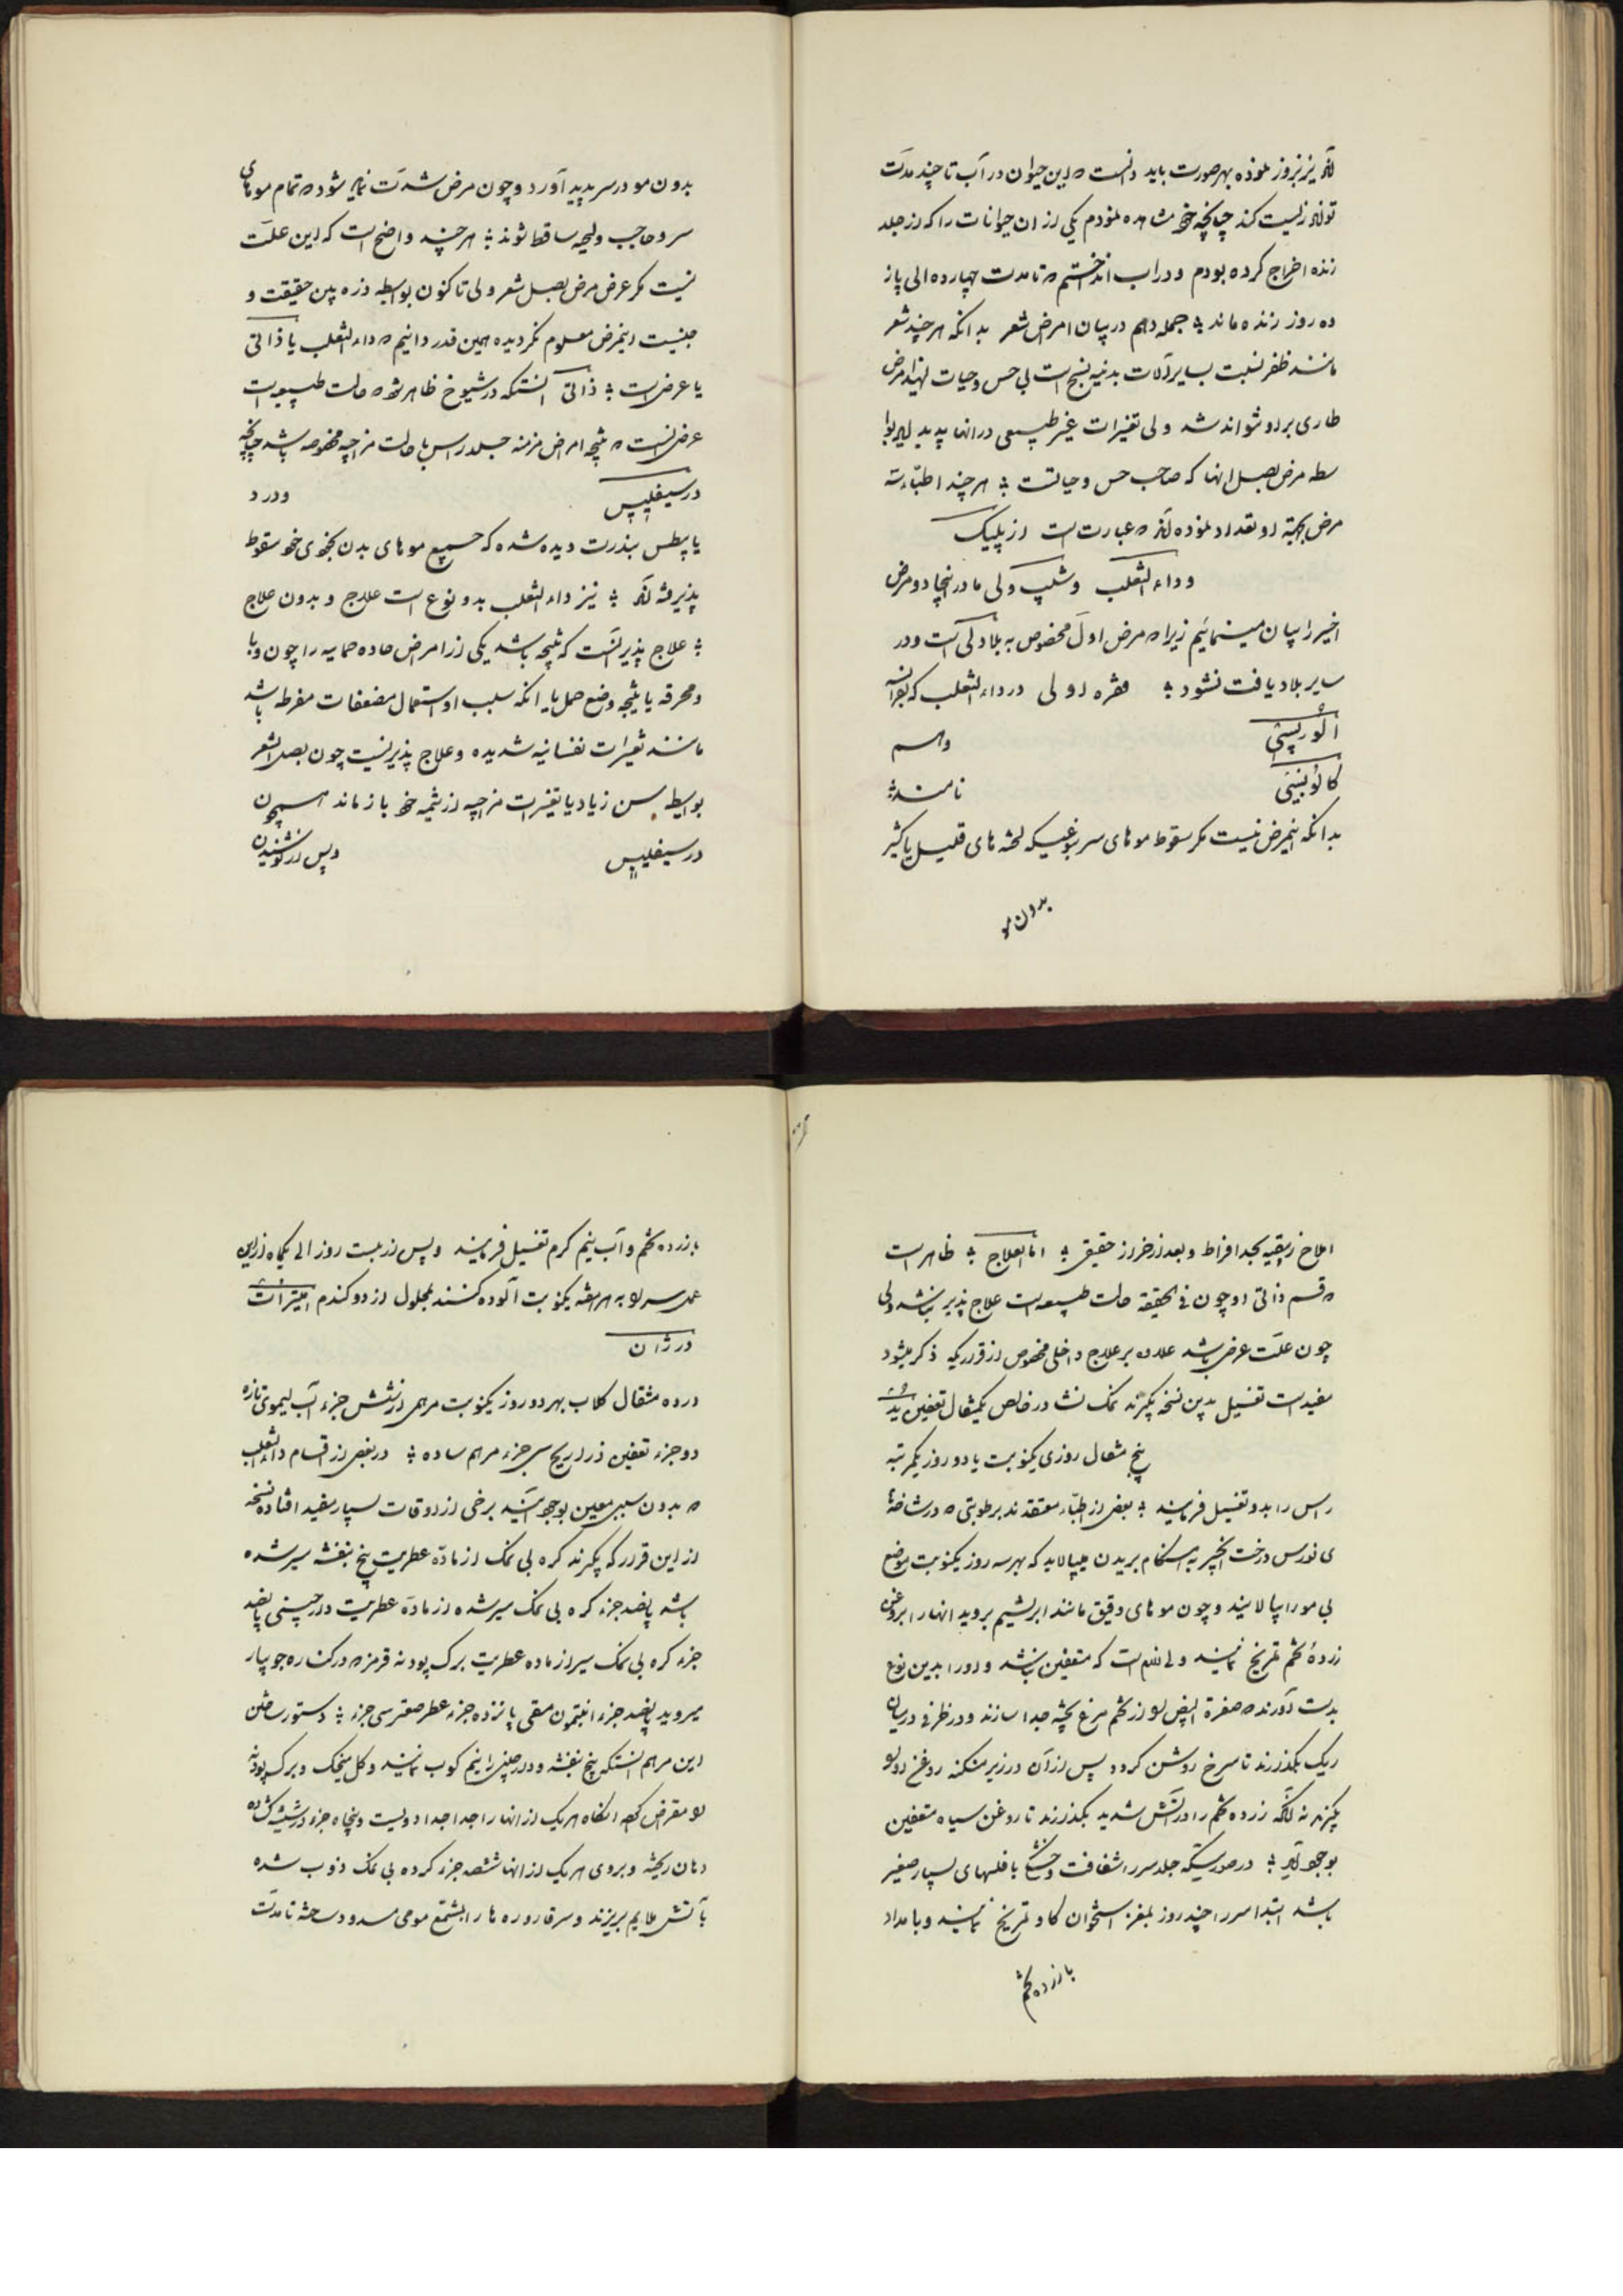 اند نیز بروز نموده بهر صورت باید دانست که این حیوان در آب تا چند مدت
تواند زیست کند چنانچه خود مشاهده نمودم یکی از ان حیوانات را که از جلد
زنده اخراج کرده بودم و در اب انداختم که تا مدت چهارده الی پانز
ده روز زنده ماند جمله دهم در بیان امراض شعر بدانکه هر چند شعر
مانند ظفر نسبت بسایر آلات بدنیه نسج است بی حس و حیات لهذا مرض
طاری بر او نتواند شد ولی تغیرات غیر طبیعی در انها پدید اید بوا
سطه مرض بصل انها که صاحب حس و حیاتست هر چند اطباء سه
مرض بجهة او تعداد نموده اند که عبارت است از پلیک
و داء الثعلب و شیب ولی ما در اینجا دو مرض
اخیر را بیان مینمائیم زیرا که مرض اول مخصوص به بلاد لی است و در
سایر بلاد یافت نشود فقره اولی در داء الثعلب که بفرانسه
الوپسی و اسم
کالویسی نامند
بدانکه اینمرض نیست مکر سقوط موهای سر بنوعیکه لخته های قلیل یا کثیر
بدون مو
بدون مو در سر پدید آورد و چون مرض شدت نماید شود که تمام موهای
سر و حاجب و لحیه ساقط شوند هر چند واضح است که این علت
نیست مکر عرض مرض بصل شعر ولی تا کنون بواسطه ذره بین حقیقت و
جنسیت اینمرض معلوم نکردیده همین قدر دانیم که داء الثعلب یا ذاتی
یا عرضی است ذاتی انستکه در شیوخ ظاهر شود که حالت طبیعی است
عرضی انست که نتیجه امراض مزمنه جلد راس یا حالت مزاجیه مخصوصه باشد چنانچه
در سیفلیس و در د
یا بطس بندرت دیده شده که جمیع موهای بدن بخودی خود سقوط
پذیرفته اند نیز داء الثعلب بدو نوع است علاج و بدون علاج
علاج پذیر انست که نتیجه باشد یکی از امراض حاده حمایه را چون وبا
و محرقه یا نتیجه وضع حمل یا انکه سبب او استعمال مضعفات مفرطه باشد
مانند تغیرات نفسانیه شدیده و علاج پذیر نیست چون بصل الشعر
بواسطه سن زیاد یا تغیرات مزاجیه از تنمیه خود باز ماند همچون
در سیفلیس و پس از نوشیدن
املاح زیبقیه بحد افراط و بعد از خراز حقیقی اما العلاج ظاهر است
که قسم ذاتی او چون فی الحقیقه حالت طبیعی است علاج پذیر نباشد ولی
چون علت عرضی باشد علاوه بر علاج داخلی مخصوص از قراریکه ذکر میشود
مفید است تغسیل بدین نسخه بکیرند نمک نشادر خالص یکمثقال تعفین
پنج مثقال روزی یکنوبت یا دو روز یکمرتبه
راس را بدو تغسیل فرمایند بعضی از اطباء معتقدند برطوبتی که در شاخهٔ
ی نورس درخت انجیر به هنکام بریدن میپالاید که بهر سه روز یکنوبت موضع
بی مو را بیالایند و چون موهای دقیق مانند ابریشم بروید انها را بروغن
زردهٔ تخم تمریخ نمایند ولی لازم است که متعفن نباشد و او را بدین نوع
بدست آورند که صفرة البیض را از تخم مرغ پخته جدا سازند و در ظرفی در میان
ریک بکذارند تا سرخ روشن کردد و پس از آن در زیر منکنه روغن او را
بکیرند نه آنکه زرده تخم را در آتش شدید بکذارند تا روغن سیاه متعفن
بوجود آید در صورتیکه جلد سر را شفافت و خشکی با فلسهای بسیار صغیر
باشد ابتدا سر را چند روز بمغز استخوان کاو تمریخ نمایند و بامداد
با زرده تخم
با زرده تخم و آب نیم کرم تغسیل فرمایند و پس از بیست روز الی یکماه از این
عمل سر را به هر هفته یکنوبت آلوده کنند بمحلول از دو کندم نیترات
درژان
در ده مثقال کلاب بهر دو روز یکنوبت مرهمی از شش جزء آب لیموی تازه
دو جزء تعفین ذراریح سی جزء مرهم ساده در بعضی از اقسام داء الثعلب
که بدون سببی معین بوجود آیند برخی از اوقات بسیار مفید افتاده نسخه
از این قرار که بکیرند کره بی نمک از مادّه عطریت بنفشه سیر شده
باشد پانصد جزء کره بی نمک سیر شده از مادّه عطریت دارچینی پانصد
جزء کره بی نمک سیر از ماده عطریت برک پودنه قرمز که در کناره جویبار
میروید پانصد جزء افتیمون منقی پانزده جزء عطر صعتر سی جزء دستور ساختن
این مرهم انستکه بیخ بنفشه و دارچینی را نیم کوب نمایند و کل میخک و برک پودنه
را مقراض کرده انکاه هر یک از انها را جدا جدا دویست و پنجاه جزء در شیشه کشاده
دهان ریخته و بروی هر یک از انها ششصد جزء کره بی نمک ذوب شده
باتش ملایم بریزند و سر قاروره ها را بمشمع مومی مسدود ساخته تا مدت